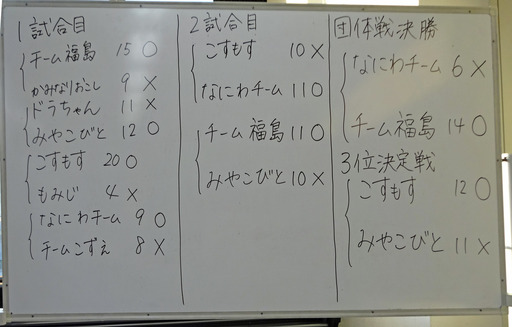 1試合目
チーム福島 15 ○
かみなりおこし 9 ×
ドラちゃん 11 ×
みやこびと 12 ○
こすもす 20 ○
もみじ 4 ×
なにわチーム 9 ○
チームこずえ 8 ×
2試合目
こすもす 10 ×
なにわチーム 11 ○
チーム福島 11 ○
みやこびと 10 ×
団体戦決勝
なにわチーム 6 ×
チーム福島 14 ○
3位決定戦
こすもす 12 ○
みやこびと 11 ×